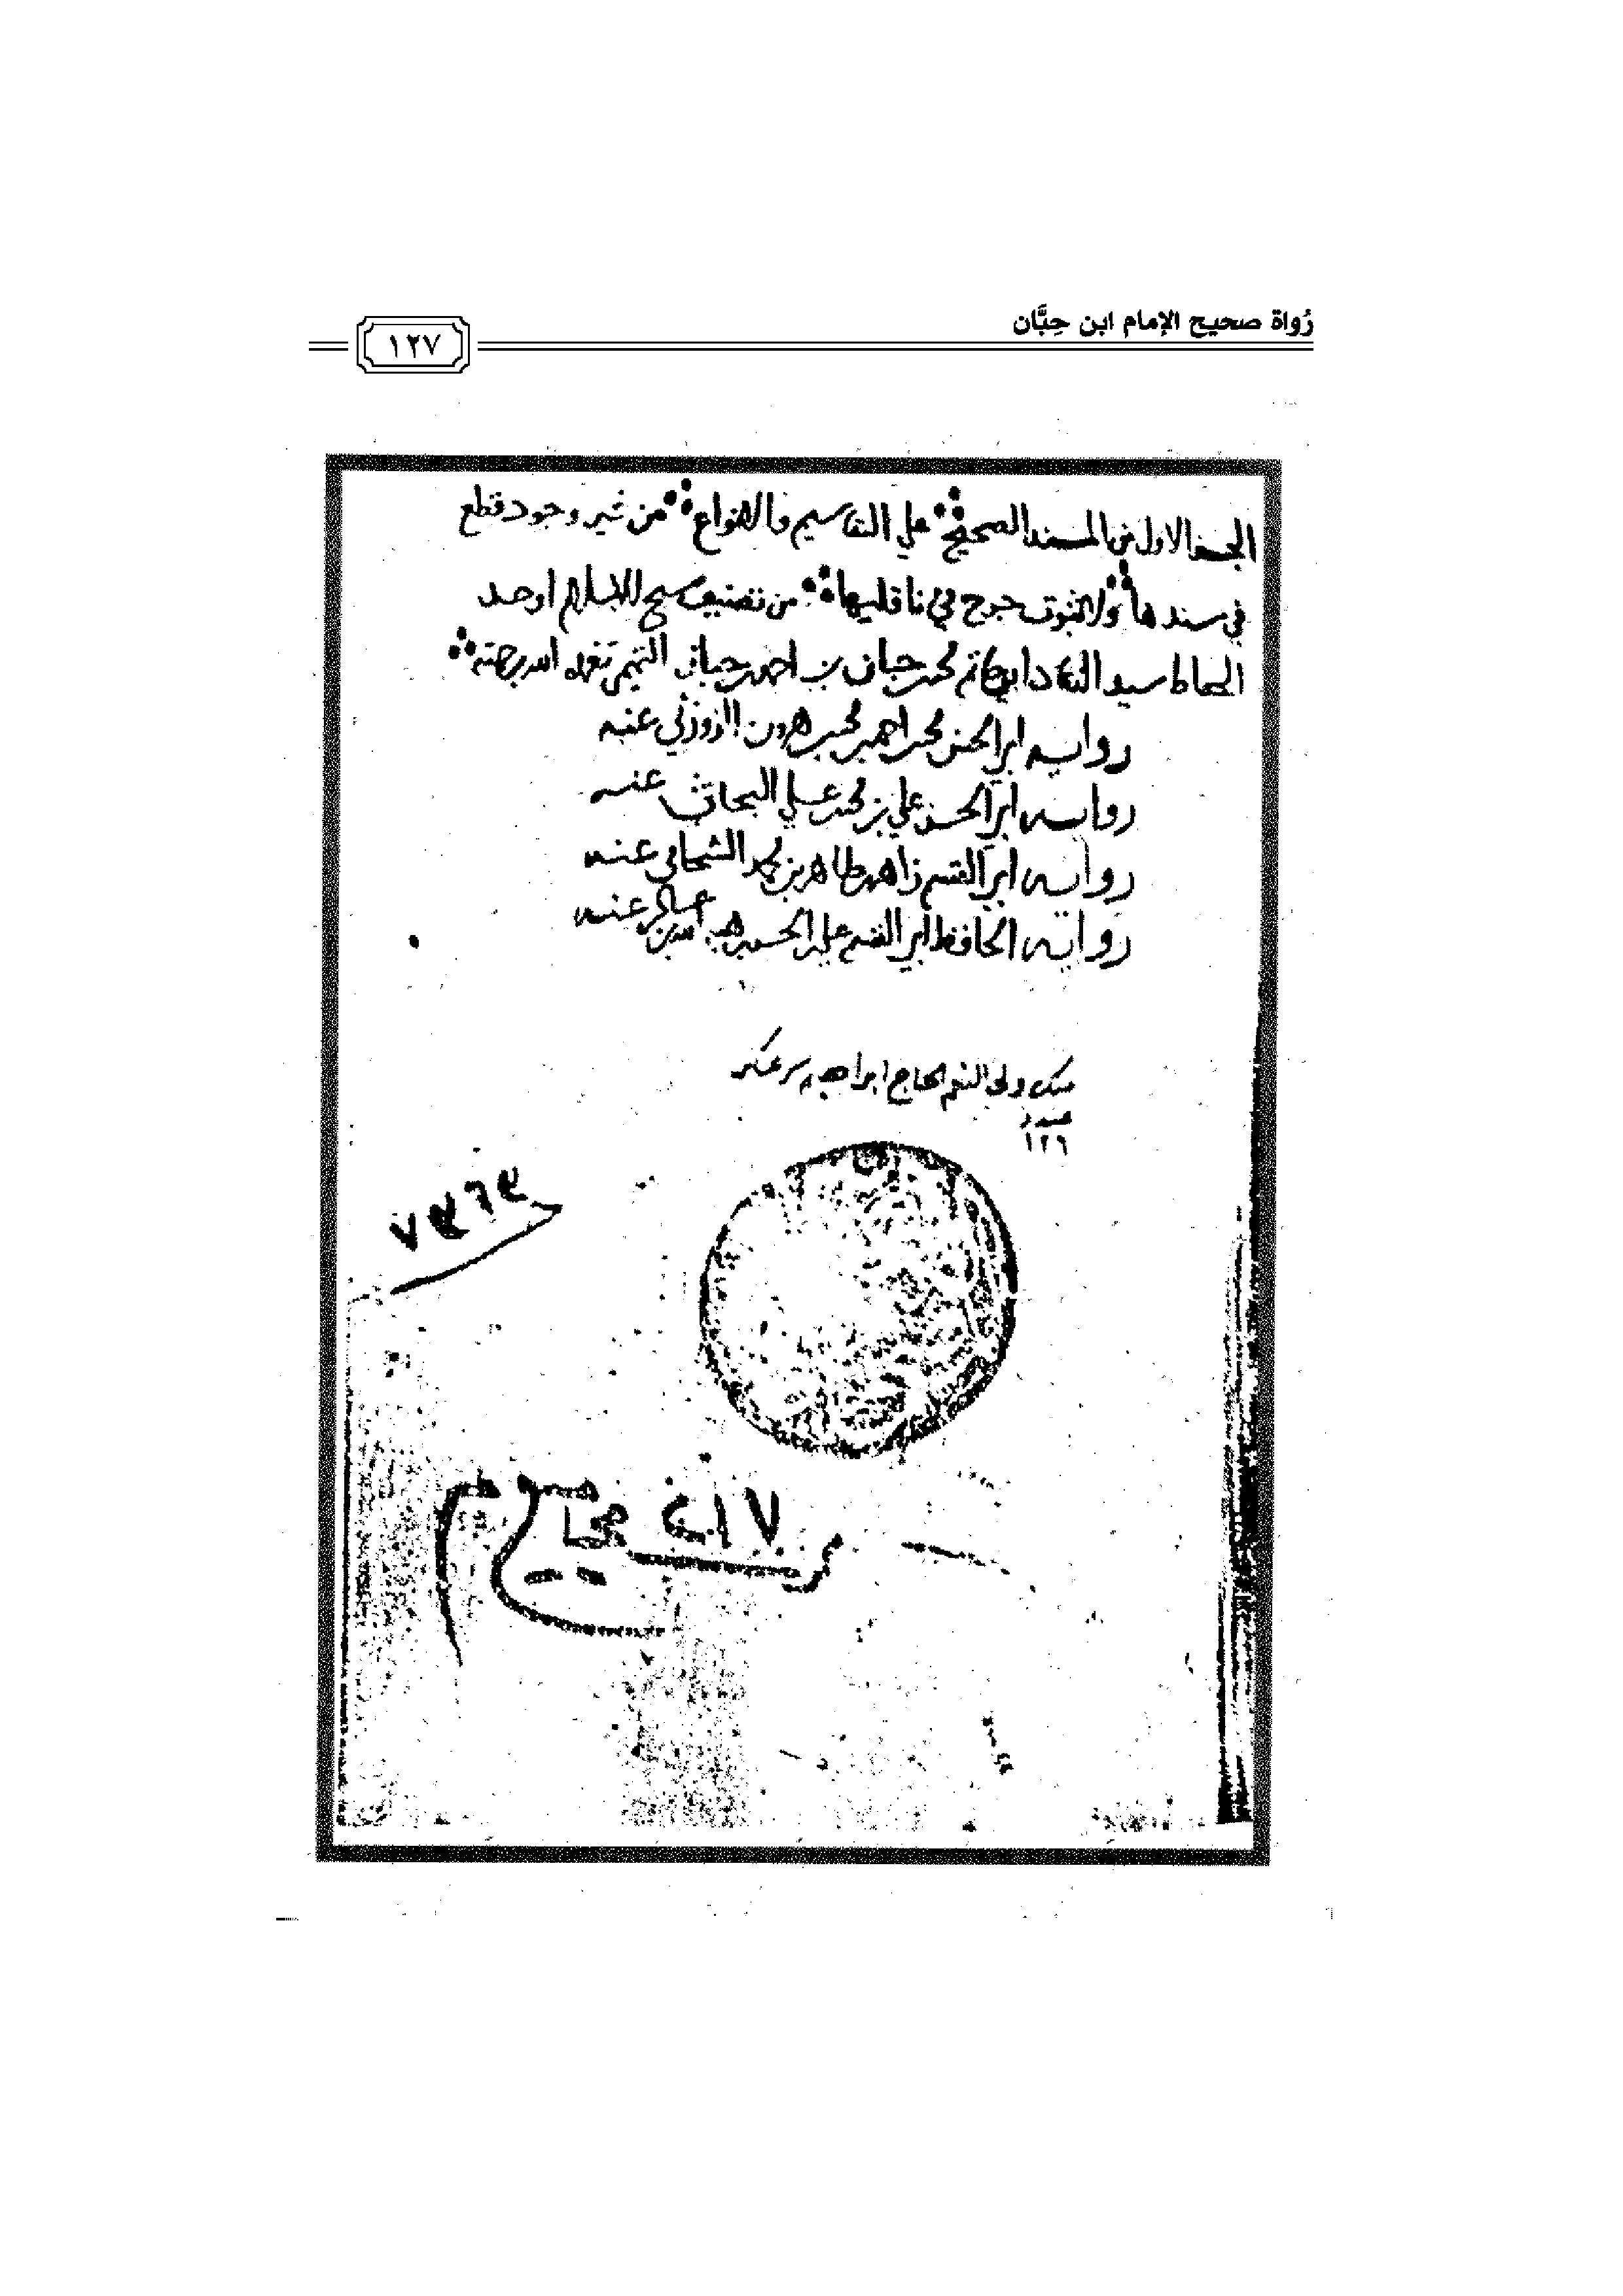 رُواة صحيح الإمام ابن حِبَّان
١٢٧
الجزء الاول من المسند الصحيح على التقاسيم والانواع من غير وجود قطع
في سندها ولا ثبوت جرح في ناقليها من تصنيف شيخ الاسلام اوحد
الحفاظ سيد النقاد ابي حاتم محمد بن حبان بن احمد بن حبان التميمي تغمده الله برحمته
رواية ابي الحسن محمد بن احمد بن محمد بن هرون الزوزني عنه
رواية ابي الحسن علي بن محمد بن علي البحاثي عنه
رواية ابي القسم زاهر بن طاهر بن محمد الشحامي عنه
رواية الحافظ ابي القسم علي بن الحسن بن هبة الله بن عساكر عنه
ولي النعم الحاج ابراهيم سر عسكر
١٢٦